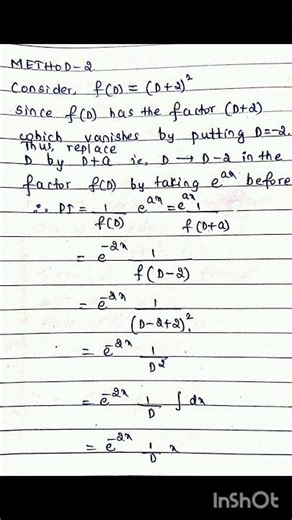 METHOD-2
Consider, f(D) = (D+2)²
Since f(D) has the factor (D+2)
which vanishes by putting D=-2.
Thus, replace
D by D+a ie, D → D-2 in the
factor f(D) by taking e^{ax} before
∴ PI = 1/f(D) e^{ax} = e^{ax} 1/f(D+a)
= e^{-2x} 1/f(D-2)
= e^{-2x} 1/(D-2+2)².
= e^{-2x} 1/D²
= e^{-2x} 1/D ∫ dx
= e^{-2x} 1/D x
InShOt